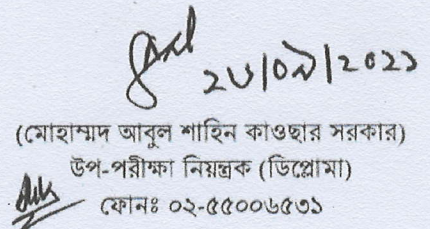 ২৮/০৯/২০২১
(মোহাম্মদ আবুল শাহিন কাওছার সরকার)
উপ-পরীক্ষা নিয়ন্ত্রক (ডিপ্লোমা)
ফোনঃ ০২-৫৫০০৬৫৩১